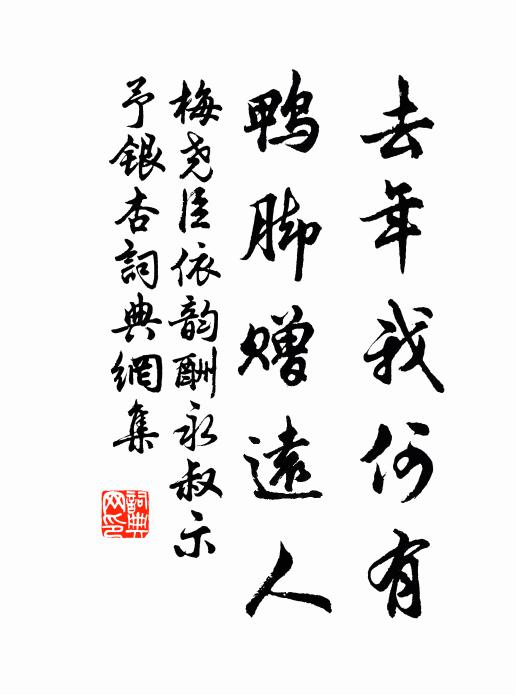 去年我何有
鸭脚赠遠人
梅尧臣依韵酬永叔示
予銀杏詞典網集
詞典网印